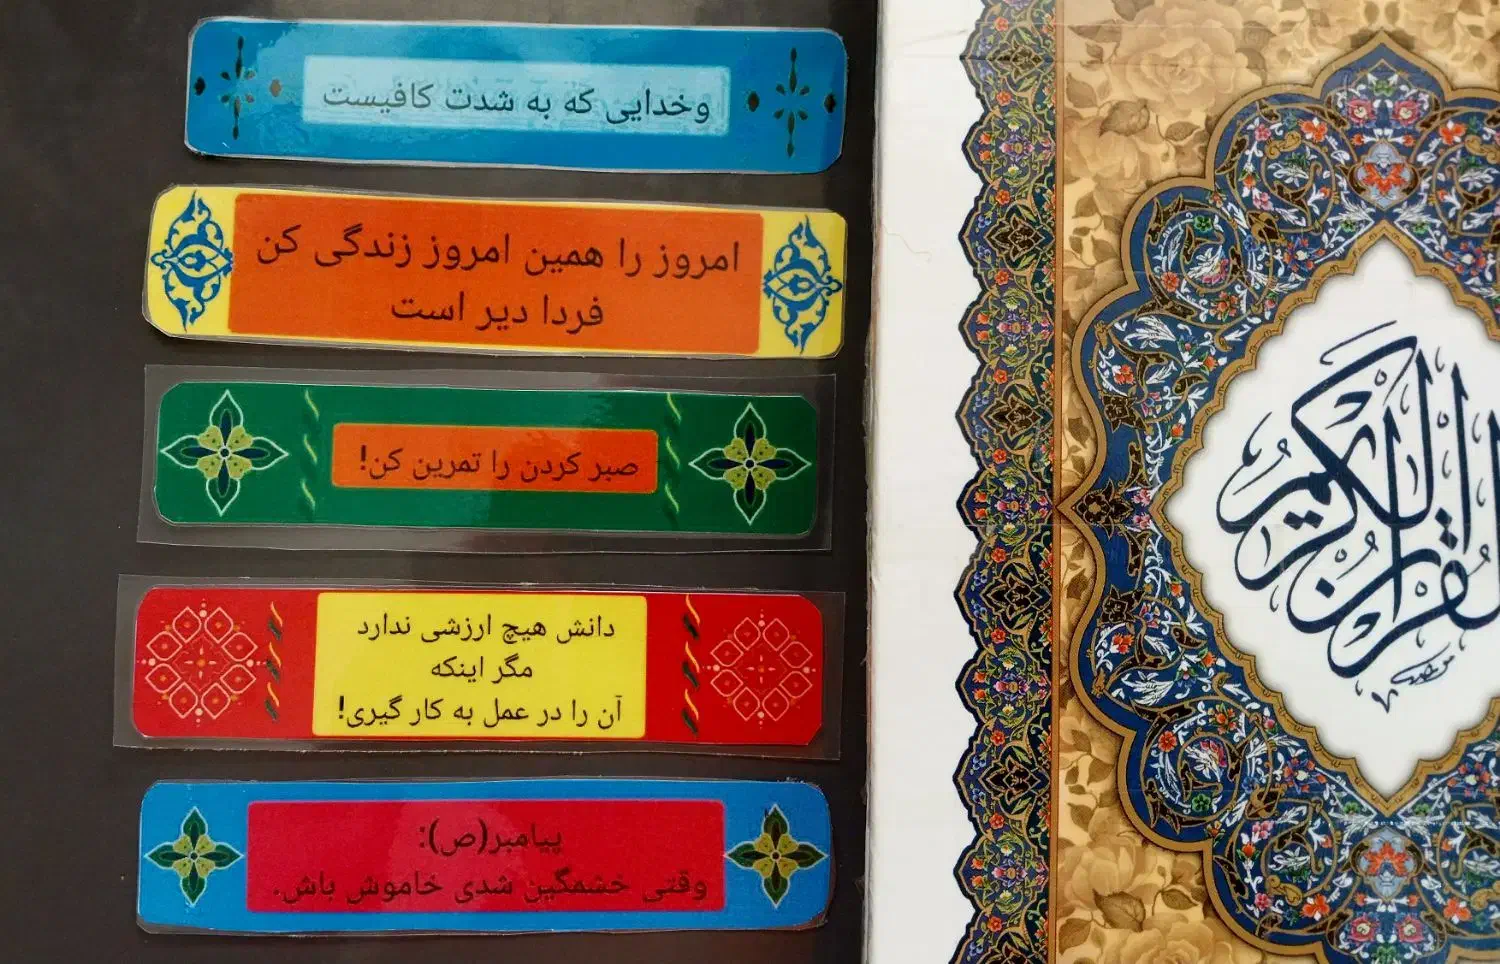 وخدایی که به شدت کافیست
امروز را همین امروز زندگی کن
فردا دیر است
صبر کردن را تمرین کن!
دانش هیچ ارزشی ندارد
مگر اینکه
آن را در عمل به کار گیری!
پیامبر(ص):
وقتی خشمگین شدی خاموش باش.
القرآن الكريم